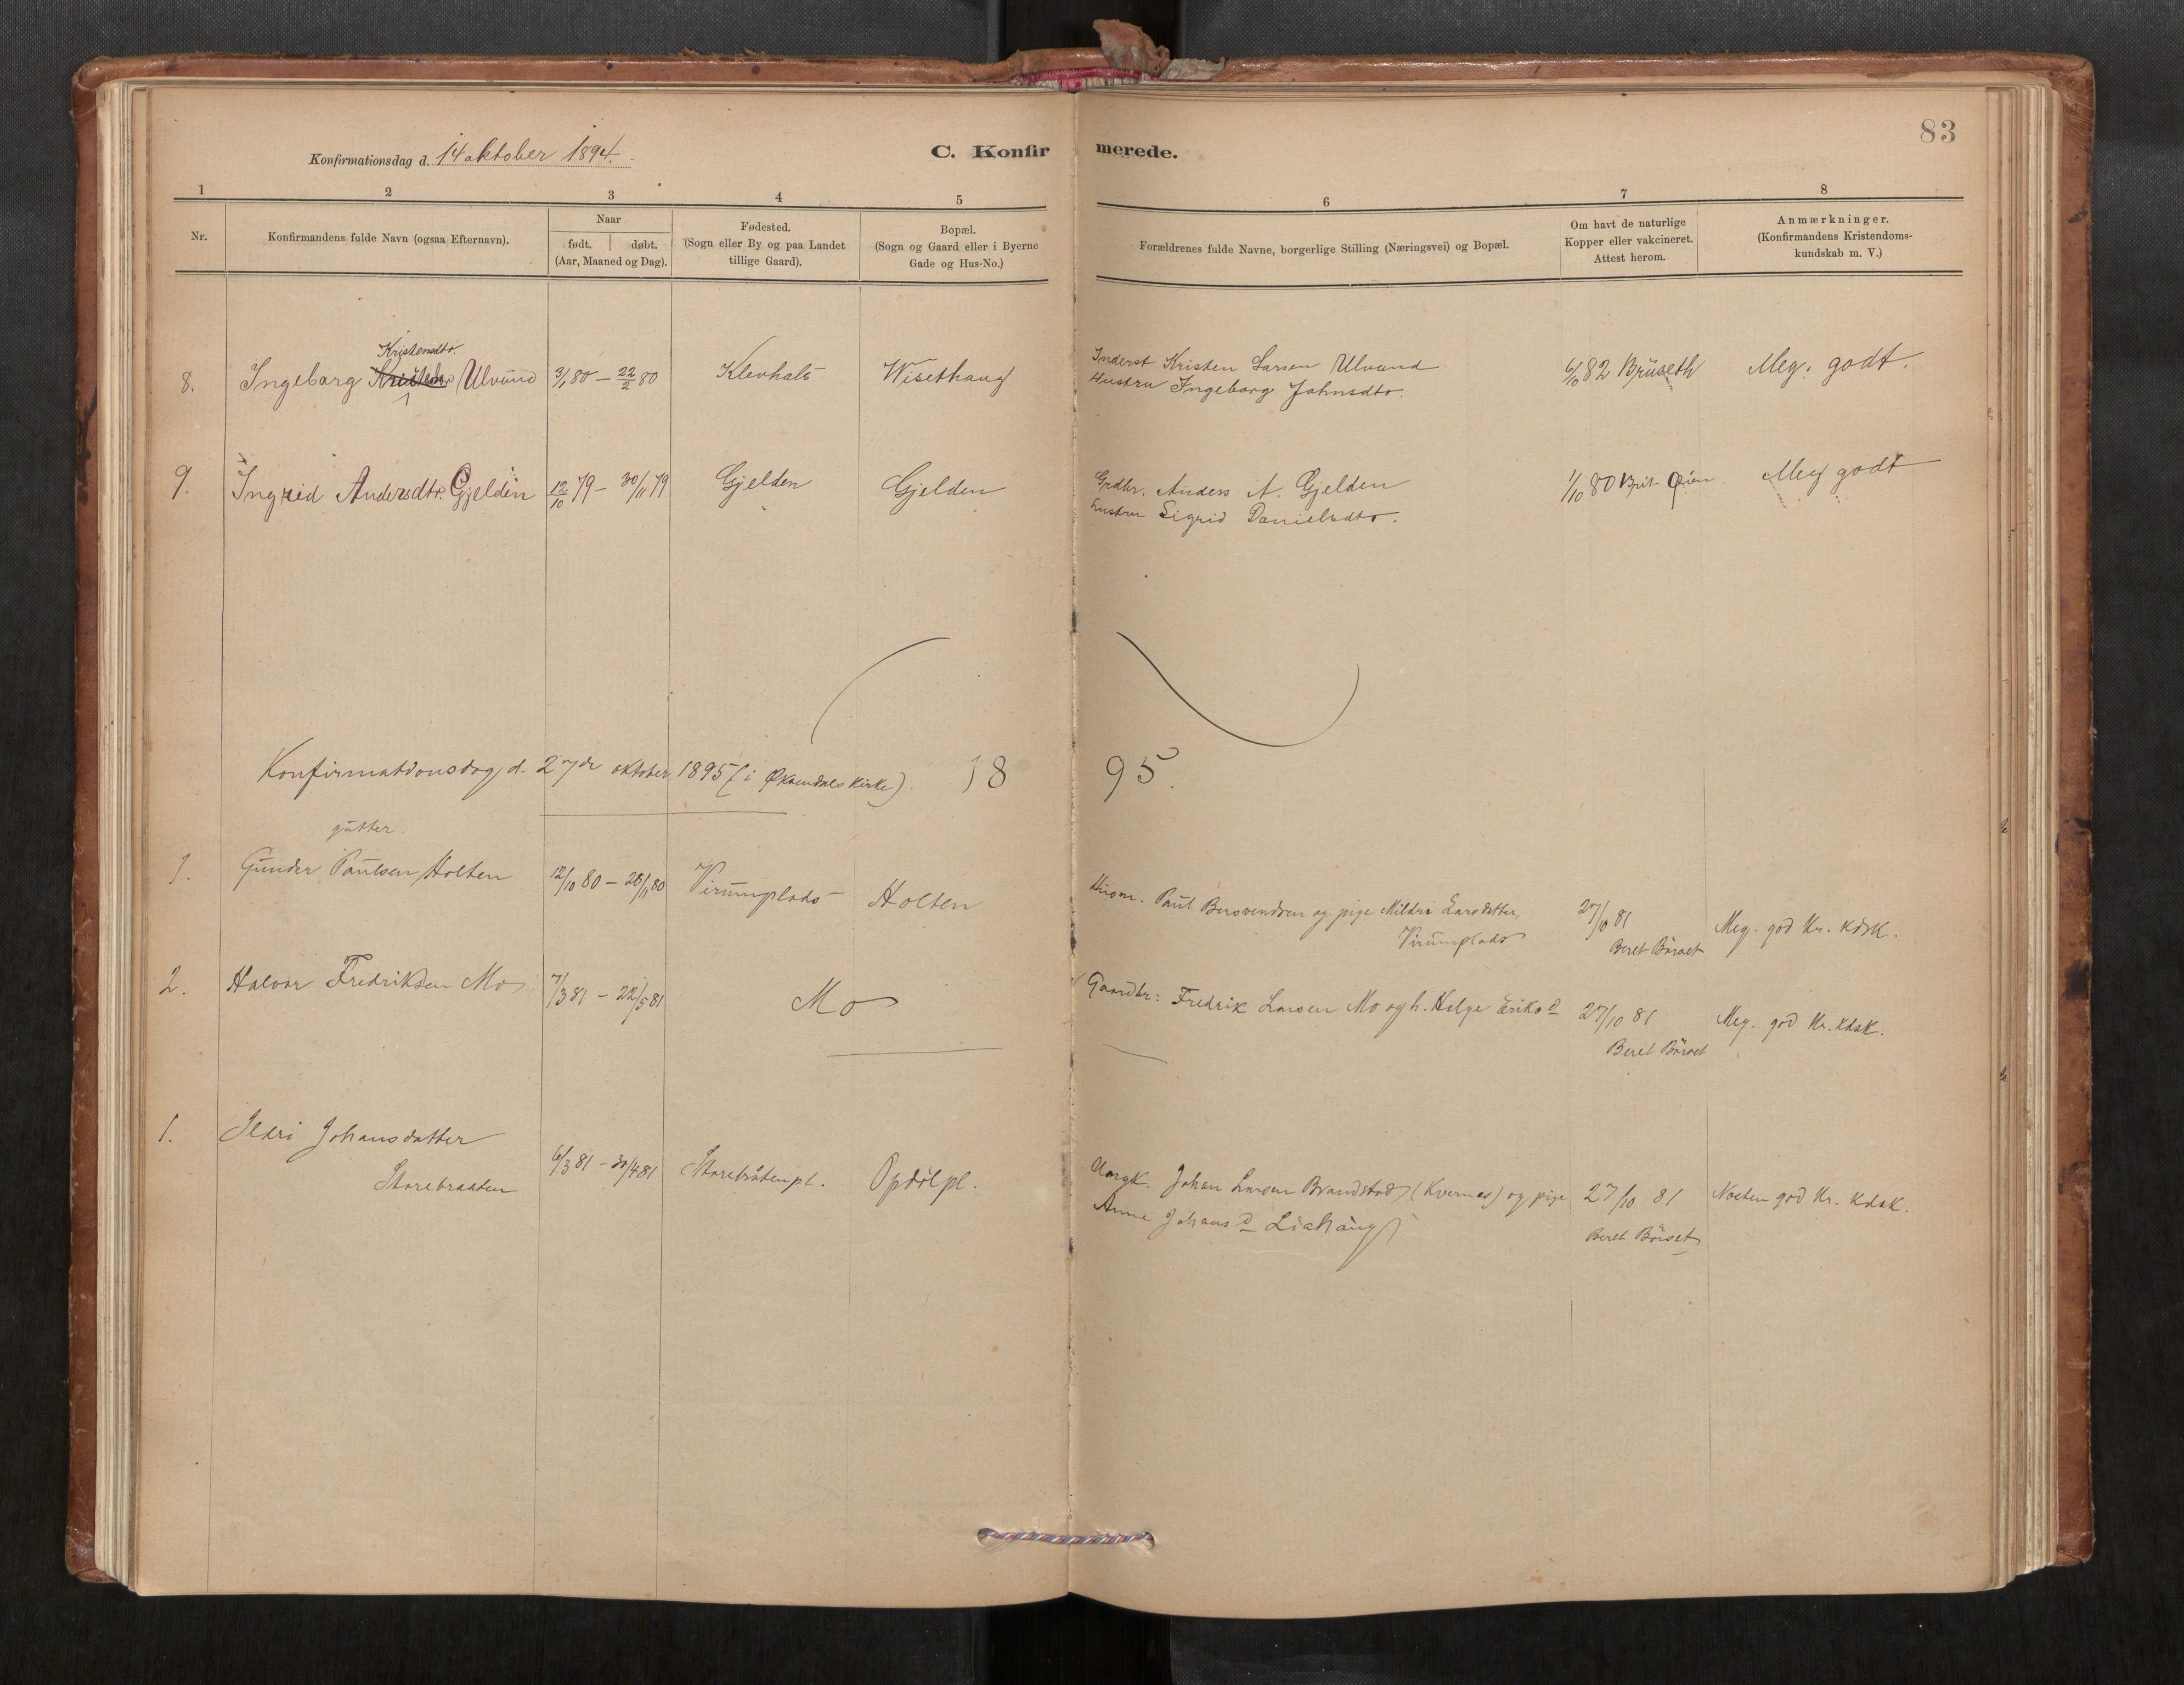 83
Konfirmationsdag d. 14 oktober 1894.
C. Konfir merede.
1 2 3 4 5 6 7 8
Nr.
Konfirmandens fulde Navn (ogsaa Efternavn).
Naar
født. døbt.
(Aar, Maaned og Dag).
Fødested.
(Sogn eller By og paa Landet
tillige Gaard).
Bopæl.
(Sogn og Gaard eller i Byerne
Gade og Hus-No.)
Forældrenes fulde Navne, borgerlige Stilling (Næringsvei) og Bopæl.
Om havt de naturlige
Kopper eller vakcineret.
Attest herom.
Anmærkninger.
(Konfirmandens Kristendoms-
kundskab m. V.)
Kristensdtr.
8. Ingeborg Ulvund 3/1 80 – 22/2 80 Klevhals Wisethaug Inderst Kristen Larsen Ulvund 6/10 82 Brüseth Meg. godt.
Hustru Ingeborg Johnsdtr.
9. Ingrid Andersdtr. Gjelden 12/10 79 – 30/11 79 Gjelden Gjelden Grdbr. Anders A. Gjelden 1/10 80 Brit Øien Meg godt
hustru Sigrid Danielsdtr.
Konfirmationsdag d. 27de oktober 1895 (i Øksendals Kirke). 18 95.
gutter
1. Gunder Paulsen Holten 12/10 80 – 28/11 80 Virumplads Holten Husm. Paul Bersvendsen og pige Mildri Larsdatter, 27/10 81 Meg. god Kr. kdsk.
Virumplads Beret Börset
2. Halvor Fredriksen Mo 7/3 81 – 22/5 81 Mo Gaardbr: Fredrik Larsen Mo og h. Helge Eriksd 27/10 81 Meg. god Kr. kdsk.
Beret Börset
1. Ildri Johansdatter
Storebraaten 6/3 81 – 30/4 81 Storebråtenpl. Opdölpl. Ungk. Johan Larsen Brandstad (Kvernes) og pige 27/10 81 Nosten god Kr. kdsk.
Anne Johansd Liahaug Beret Börset